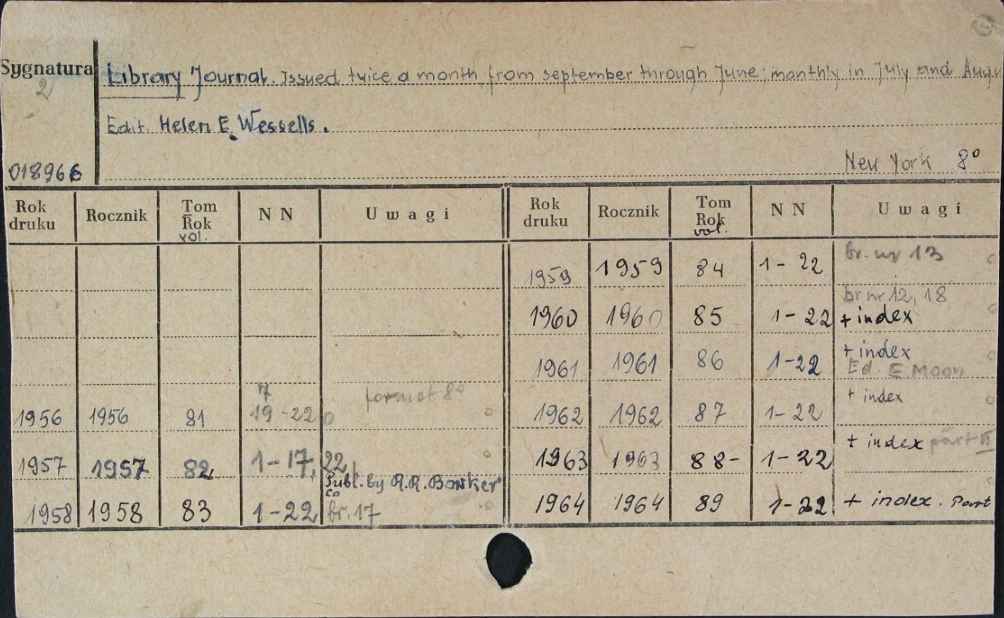 Sygnatura Library Journal. Issued twice a month from september through June; monthly in July and Augu
2
Edit. Helen E. Wessells.
018966 New York 8°
Rok druku Rocznik Tom Rok vol. NN Uwagi
Rok druku Rocznik Tom Rok vol. NN Uwagi
1956 1956 81 7 19-22 format 8°
1957 1957 82 1-17, 22
Publ. by R.R. Bowker Co
1958 1958 83 1-22 br. 17
1959 1959 84 1-22 br. nr 13
1960 1960 85 1-22 br nr 12, 18 + index
1961 1961 86 1-22 + index Ed. E Moon
1962 1962 87 1-22 + index
1963 1963 88- 1-22 + index part II
1964 1964 89 1-22 + index. Part